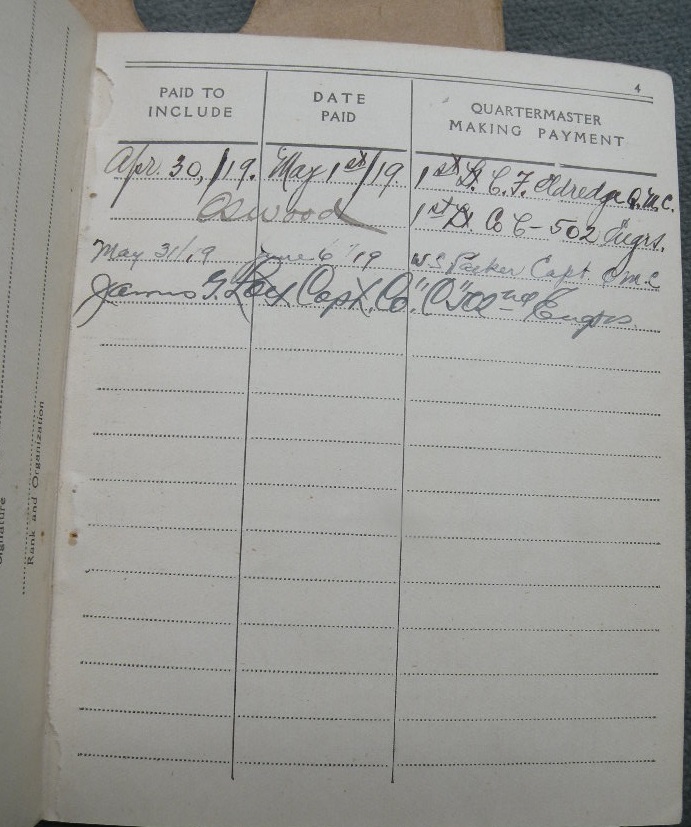 4
PAID TO INCLUDE DATE PAID QUARTERMASTER MAKING PAYMENT
Apr. 30, /19. May 1st/19 1st Lt. C. F. Eldredge Q.M.C.
Oswood 1st Lt. Co C - 502 Engrs.
May 31/19 June 6"/19 W S Parker Capt Q M C
James G. Capt. Co. "C" 502nd Engrs.
Signature
Rank and Organization